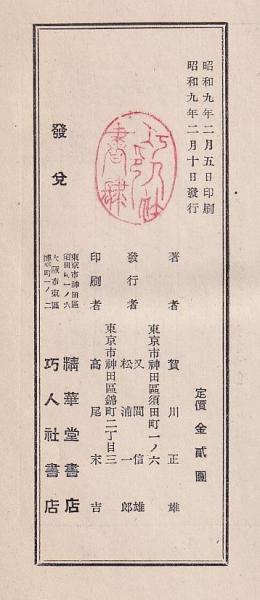 昭和九年二月五日印刷
昭和九年二月十日發行
定價金貳圓
著者 賀川正雄
東京市神田區須田町一ノ六
發行者 又間信雄
松浦一郎
東京市神田區錦町二丁目三
印刷者 高尾末吉
發兌
東京市神田區
須田町一ノ六
精華堂書店
大阪市東區
博勞町一ノ二
巧人社書店